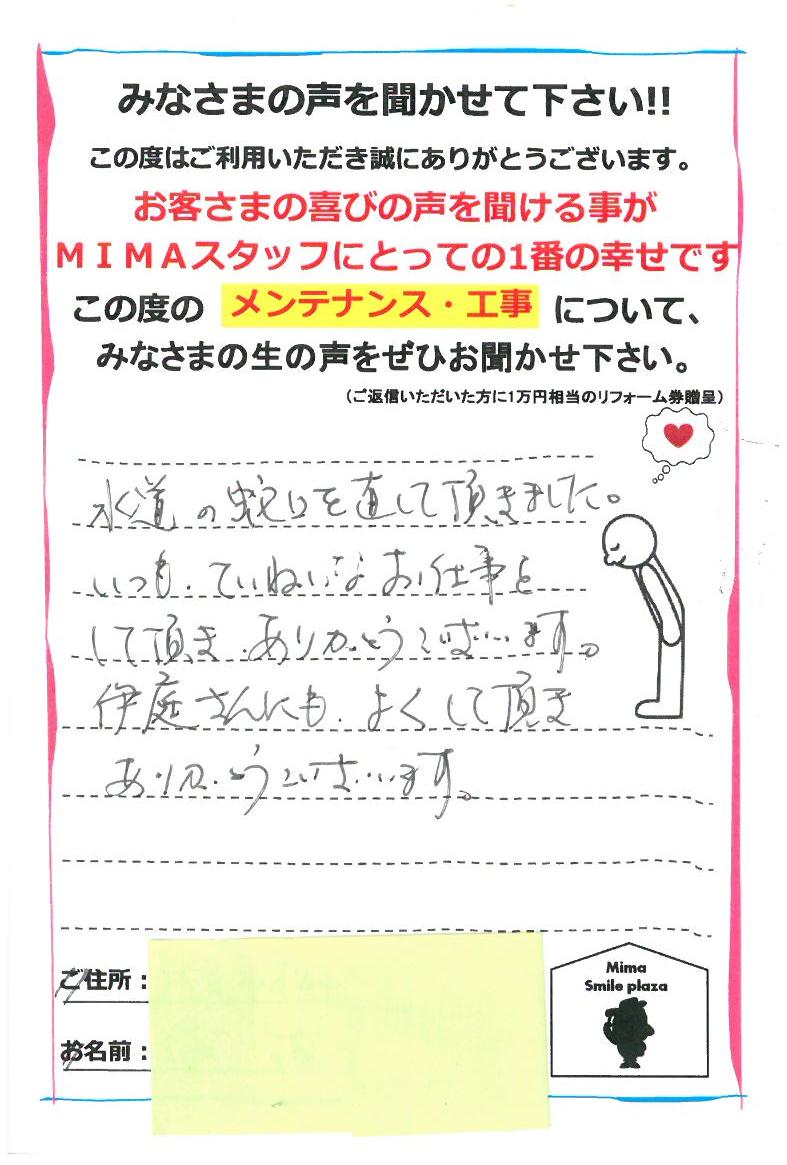 みなさまの声を聞かせて下さい!!
この度はご利用いただき誠にありがとうございます。
お客さまの喜びの声を聞ける事が
ＭＩＭＡスタッフにとっての1番の幸せです
この度の メンテナンス・工事 について、
みなさまの生の声をぜひお聞かせ下さい。
（ご返信いただいた方に1万円相当のリフォーム券贈呈）
水道の蛇口を直して頂きました。
いつも、ていねいなお仕事を
して頂き、ありがとうございます。
伊庭さんにも、よくして頂き
ありがとうございます。
ご住所：
お名前：
Mima
Smile plaza